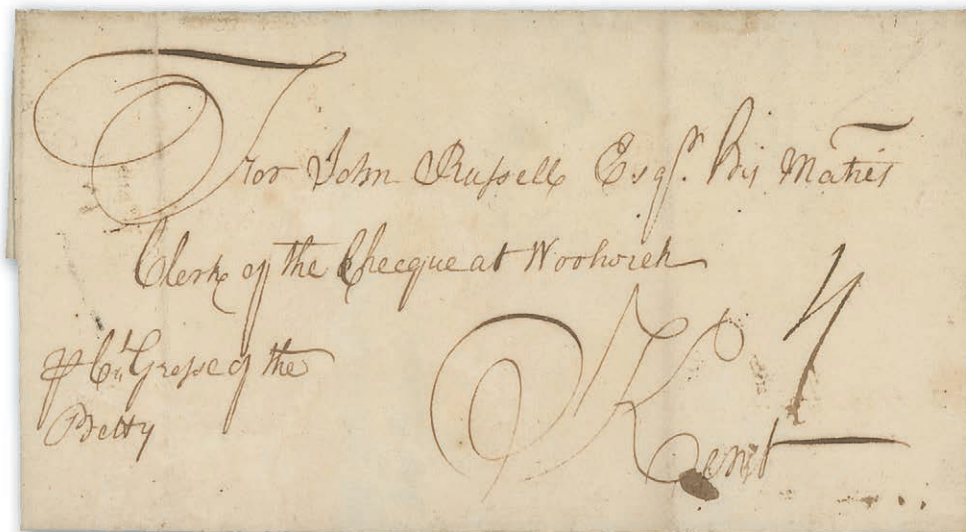 For John Russell Esqr. His Maties
Clerk of the Checque at Woolwich
4
Kent
⅌ Ct Grosse of the
Betty